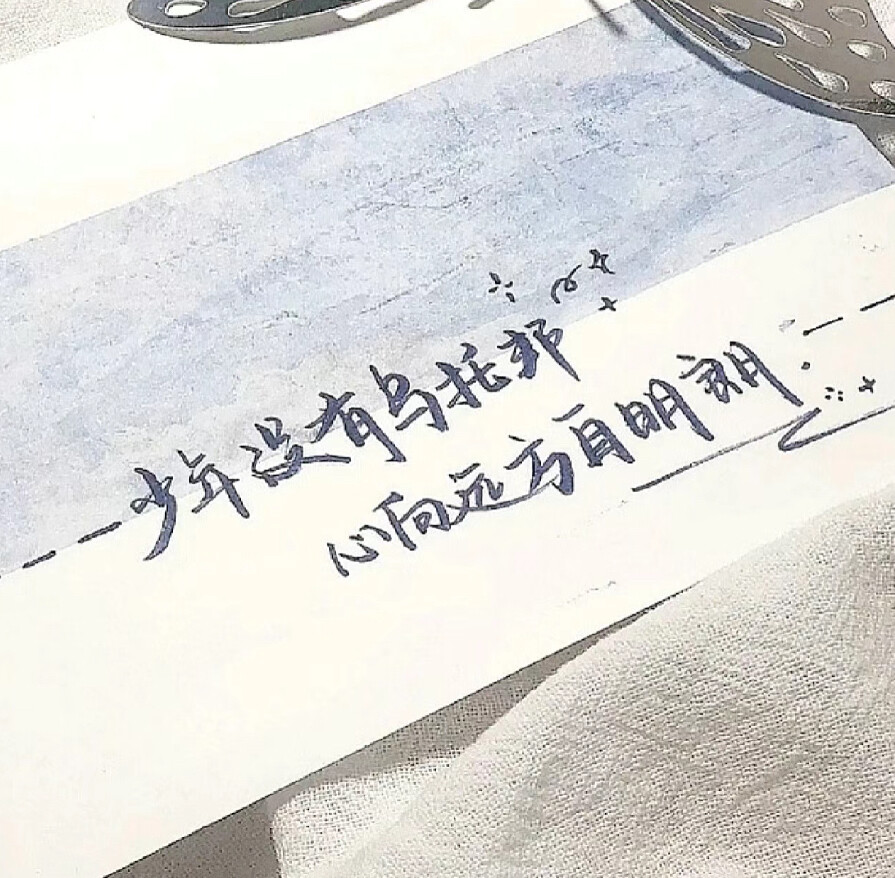 少年没有乌托邦
心向远方自明朗